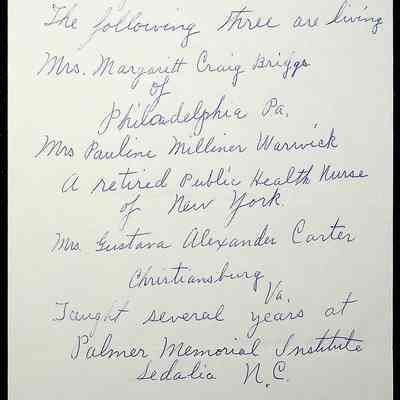 The following three are living
Mrs. Margarett Craig Briggs
of
Philadelphia Pa.
Mrs Pauline Milliner Warwick
A retired Public Health Nurse
of New York.
Mrs. Gustava Alexander Carter
Christiansburg
Va.
Taught several years at
Palmer Memorial Institute
Sedalia N.C.